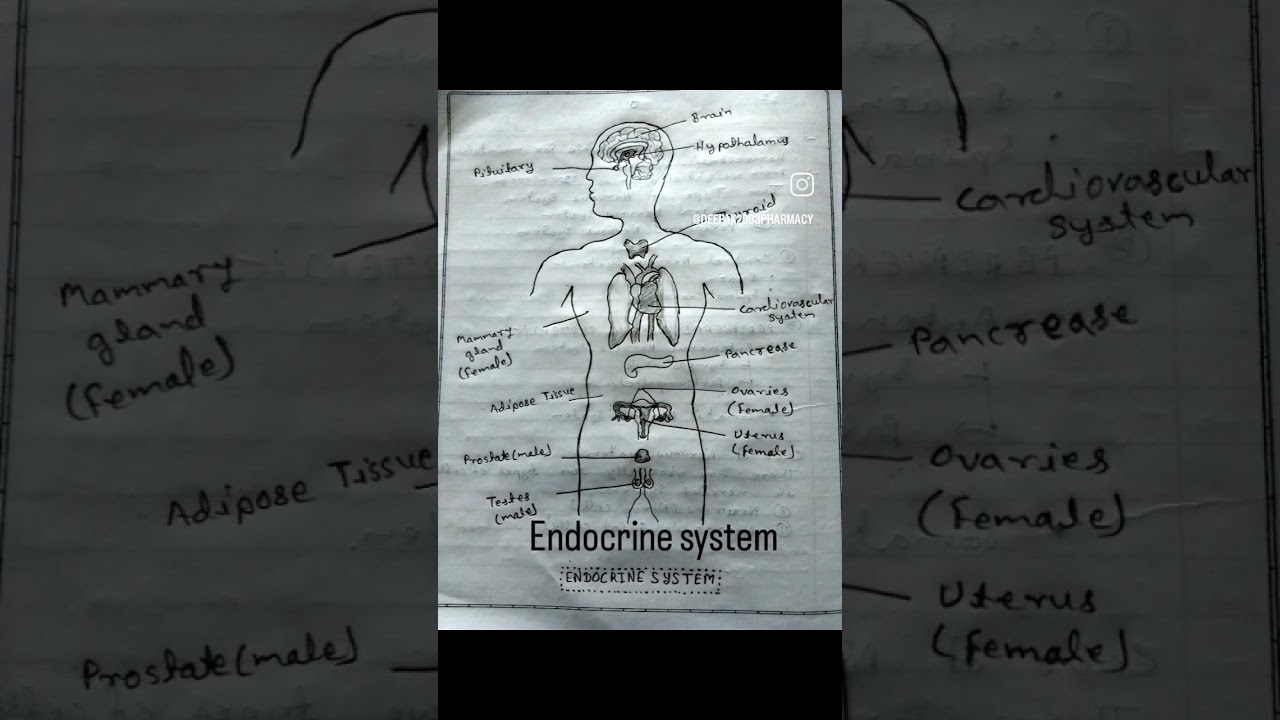 Brain
Hypothalamus
Pituitary
@DEEP
PHARMACY
Cardiovascular
system
Mammary
gland
(female)
Pancrease
Adipose Tissue
Ovaries
(female)
Uterus
(female)
Prostate(male)
Testes
(male)
Endocrine system
ENDOCRINE SYSTEM
Mammary
gland
(female)
Adipose Tissue
Prostate(male)
Cardiovascular
system
Pancrease
Ovaries
(female)
Uterus
(female)